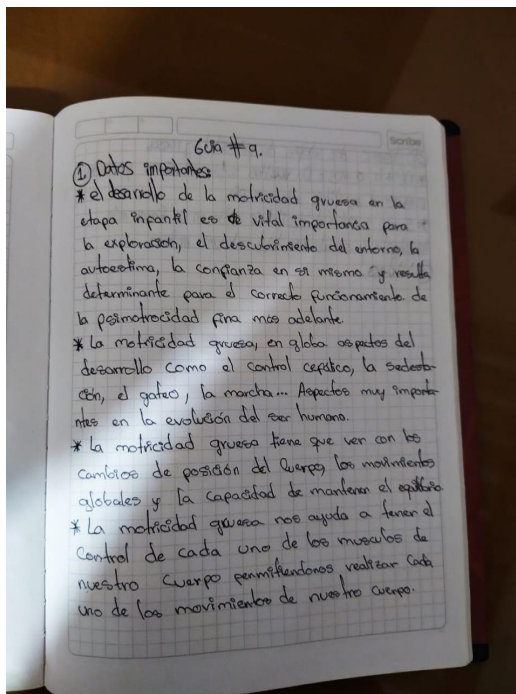 Scribe
Guia # 9.
① Datos importantes
* el desarrollo de la motricidad gruesa en la
etapa infantil es de vital importancia para
la exploracion, el descubrimiento del entorno, la
autoestima, la confianza en si mismo y resulta
determinante para el correcto funcionamiento de
la psimotrocidad fina mas adelante.
* La motricidad gruesa, en globa aspectos del
desarrollo como el control cefalico, la sedesta-
ción, el gateo, la marcha... Aspectos muy importa-
ntes en la evolución del ser humano.
* la motricidad gruesa tiene que ver con los
cambios de posición del cuerpo, los movimientos
globales y la capacidad de mantener el equilibrio
* La motricidad gruesa nos ayuda a tener el
control de cada uno de los musculos de
nuestro cuerpo permitiendonos realizar cada
uno de los movimientos de nuestro cuerpo.